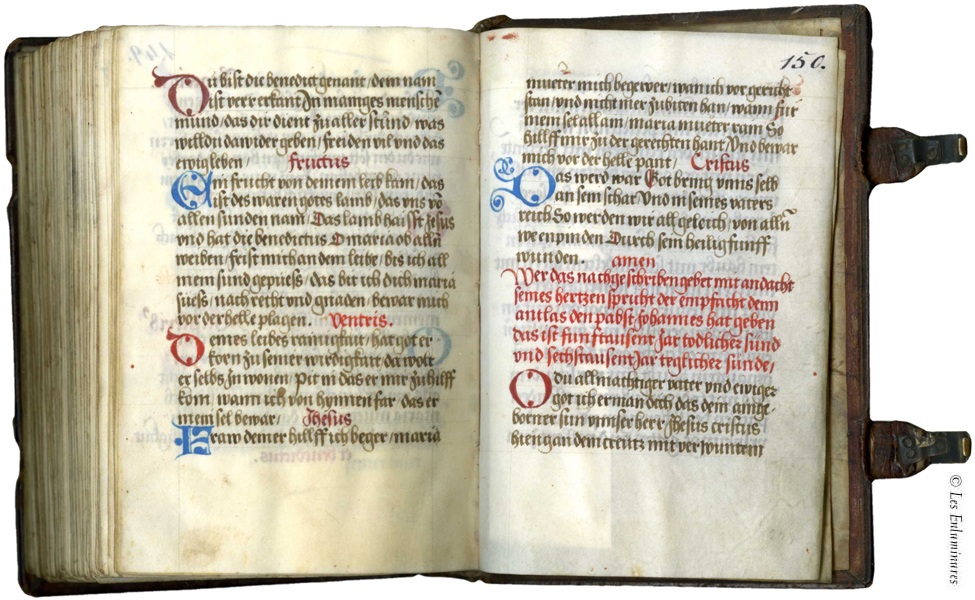 Du bist die benedict genant / dem nam
ist verr erkant In maniges mensche
mund / das dir dient zu aller stund / was
willdu dawider geben / freiden vil und das
ewig leben / fructus
Ain frucht von deinem leib kam / das
ist des waren gottes lamb / das uns vo
allen sunden nam / Das lamb haisst Jesus
und hat die benedictus O maria ob alln
weiben / frist mich an dem leibe / bis ich all
mein sund gepuess / das bit ich dich maria
suess / nach recht und gnaden / bewar mich
vor der helle plagen. ventris.
Deines leibes rainigkait / hat got er
korn zu seiner wirdigkait / da wolt
er selbs In wonen / Pit in das er mir zu hilff
kom / wann ich von hynnen far das er
mein sel bewar / Jhesus
Fraw deiner hillff ich beger / maria
150.
mueter mich begewer / wan ich vor gericht
stan / und nicht mer zubiten han / wann für
mein sel allain / maria mueter rain So
hillff mir zu der gerechten hant / Und bewar
mich vor der helle pant / Cristus
Das werd war Got bring unns selb
an sein schar / Und in seines vaters
reich So werden wir all geleich / von alln
we enpinden Durch sein heilig funff
wunden. amen
Wer das nachgeschriben gebet mit andacht
seines hertzen spricht der empfricht denn
antlas den pabst Johannes hat geben
das ist funftausent Jar todlicher sund
und sechstausent Jar teglicher sunde /
O du allmachtiger vatter und ewiger
got ich erman dich das dein ainge
borner sun unnser herr Jhesus cristus
hieng an dem creutz mit verwuntem
© Les Enluminures